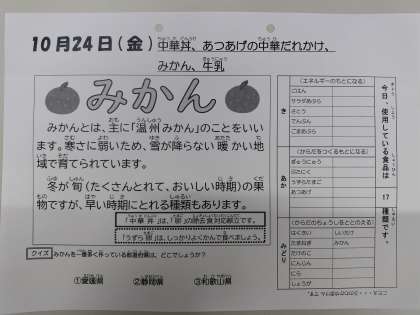 10月24日(金)中華丼、あつあげの中華だれかけ、
みかん、牛乳
みかん
みかんとは、主に「温州みかん」のことをいい
ます。寒さに弱いため、雪が降らない暖かい地
域で育てられています。
冬が旬(たくさんとれて、おいしい時期)の果
物ですが、早い時期にとれる種類もあります。
「中華丼」は、「卵」の除去食対応献立です。
「うずら卵」は、しっかりよくかんで食べましょう。
クイズ みかんを一番多く作っている都道府県は、どこでしょうか?
①愛媛県 ②静岡県 ③和歌山県
今日、使用している食品は 17 種類です。
き
(エネルギーのもとになる)
ごはん
サラダあぶら
さとう
でんぷん
ごまあぶら
あか
(からだをつくるもとになる)
ぎゅうにゅう
ぶたにく
うずらたまご
あつあげ
みどり
(からだのちょうしをととのえる)
はくさい しいたけ
たまねぎ みかん
たけのこ
にんじん
にら
しょうが